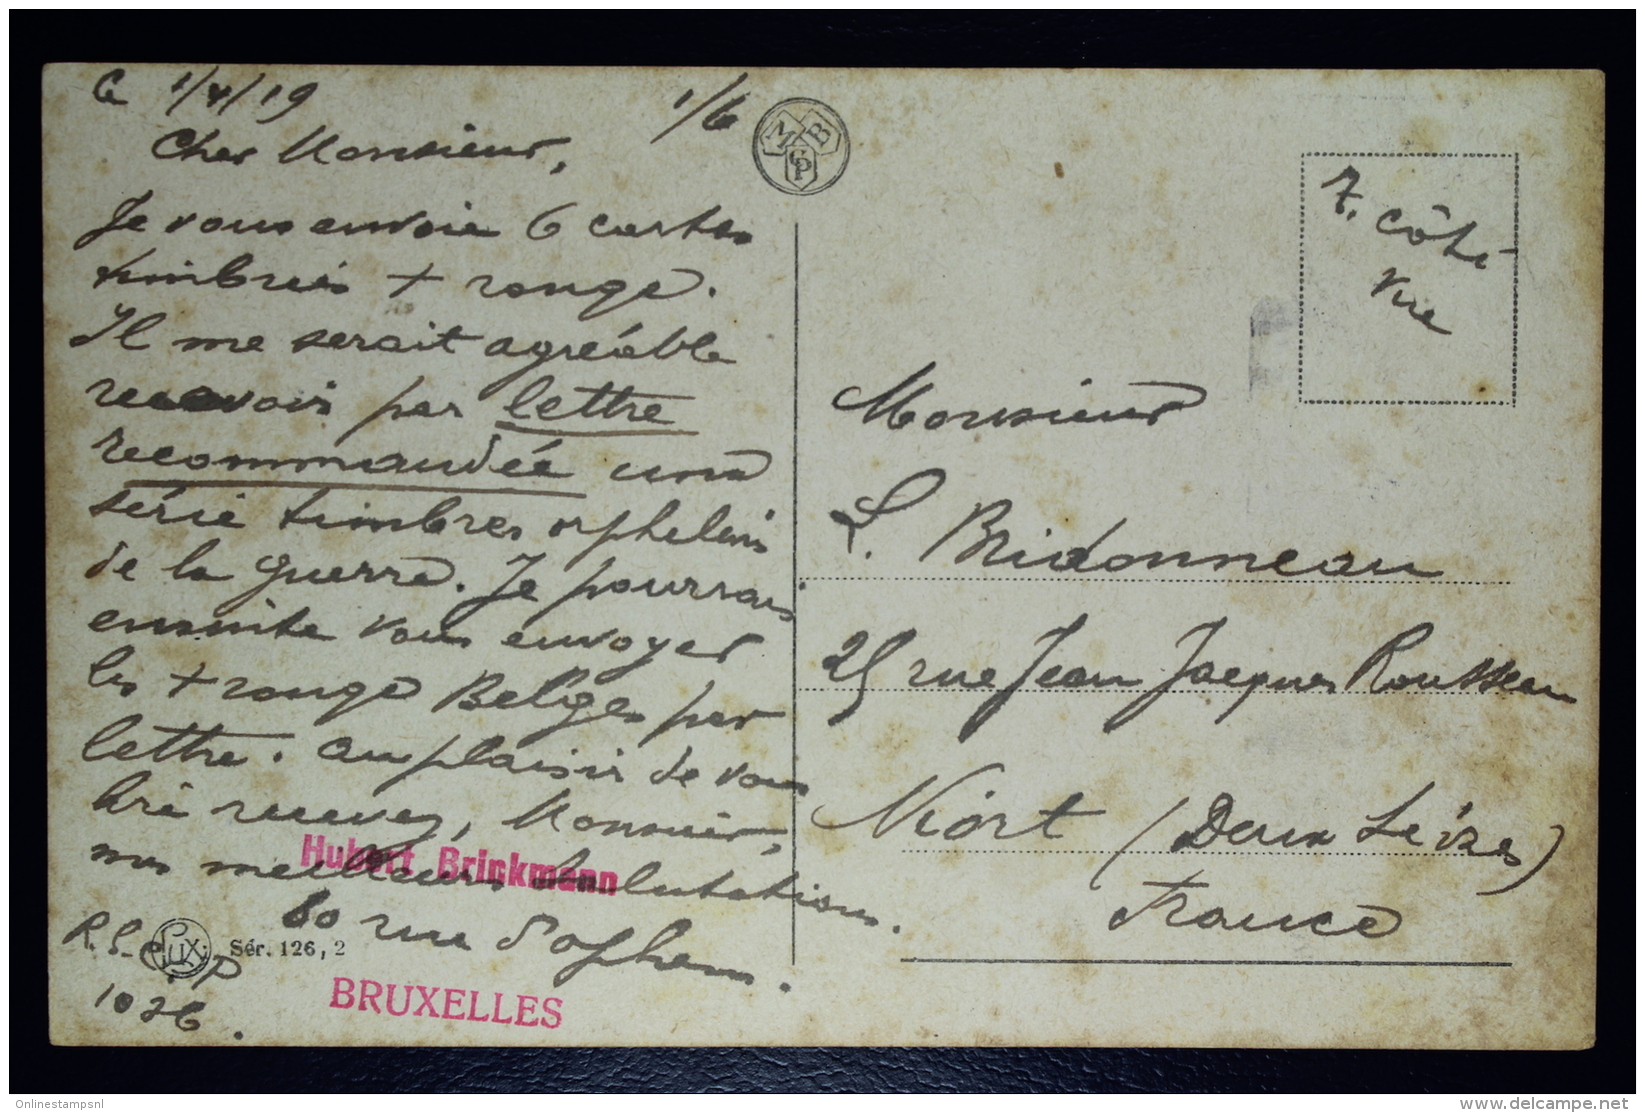 Ce 1/4/19
1/6
Cher Monsieur,
Je vous envoie 6 cartes
timbrées + rouge.
Il me serait agréable
recevoir par lettre
recommandée une
série timbres orphelins
de la guerre. Je pourrais
ensuite vous envoyer
les + rouge Belges par
lettre. au plaisir de vous
lire recevez, Monsieur,
mes meilleurs salutations.
Hubert Brinkmann
60 rue d'Ophem.
BRUXELLES
LUX
Sér. 126, 2
1026.
M B
CP
T. côté
vue
Monsieur
L. Bridonneau
25 rue Jean Jacques Rousseau
Niort (Deux Sèvres)
France
Onlinestampsnl
delcampe.net